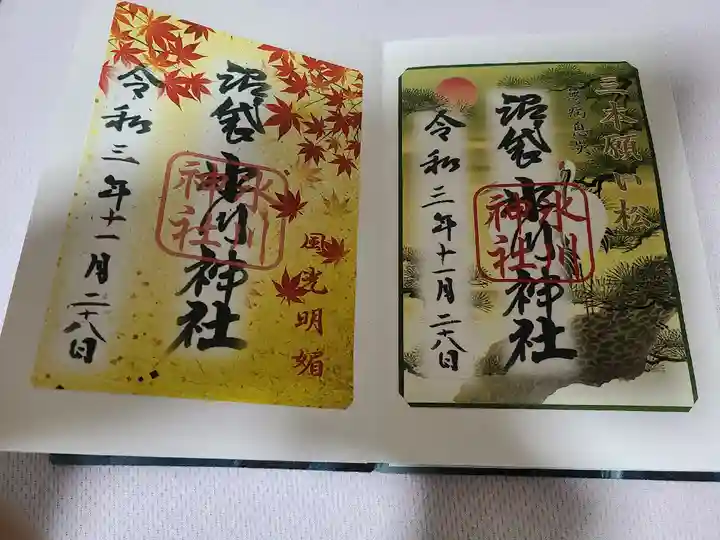 沼袋氷川神社
氷川
神社
風光明媚
令和三年十一月二十八日
三本願い松
無病息災
沼袋氷川神社
氷川
神社
令和三年十一月二十八日